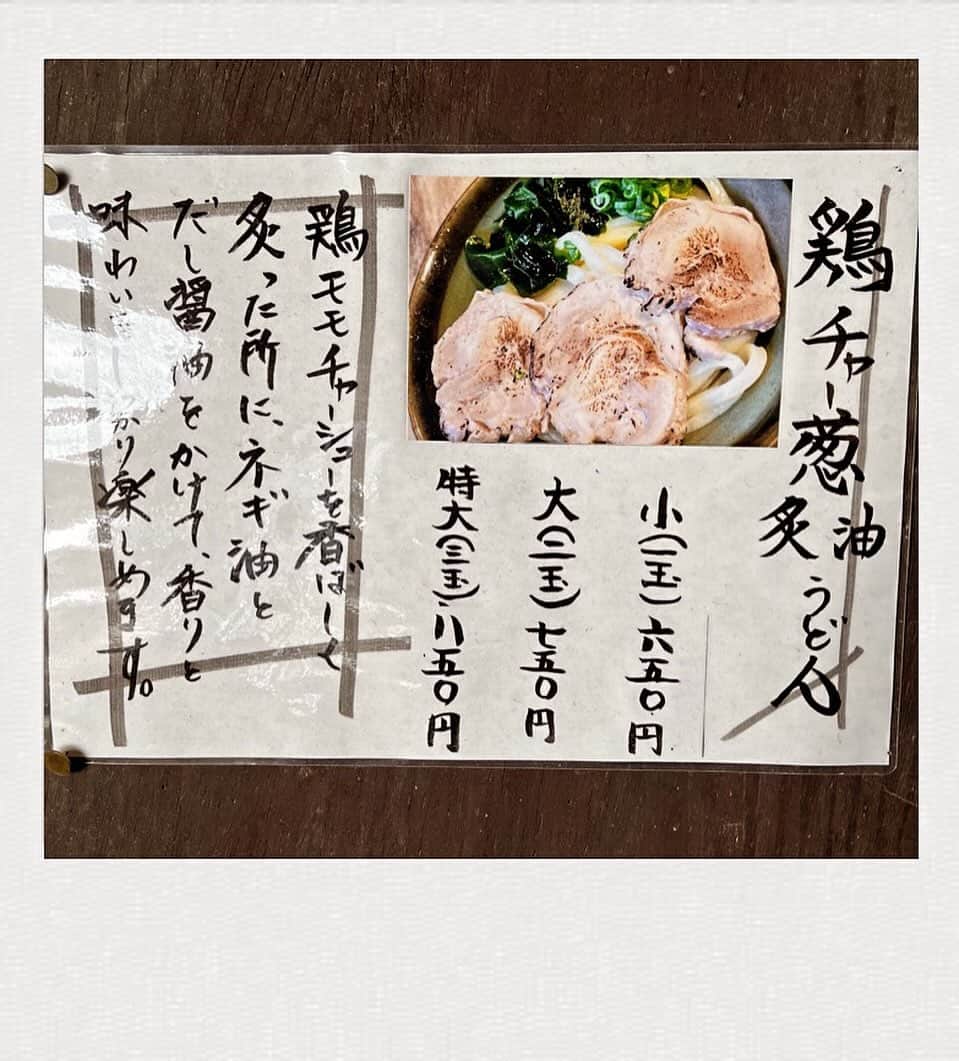 鶏チャー葱油
炙うどん
小(一玉)六五〇円
大(二玉)七五〇円
特大(三玉)八五〇円
鶏モモチャーシューを香ばしく
炙った所に、ネギ油と
だし醤油をかけて、香りと
味わいしっかり楽しめます。